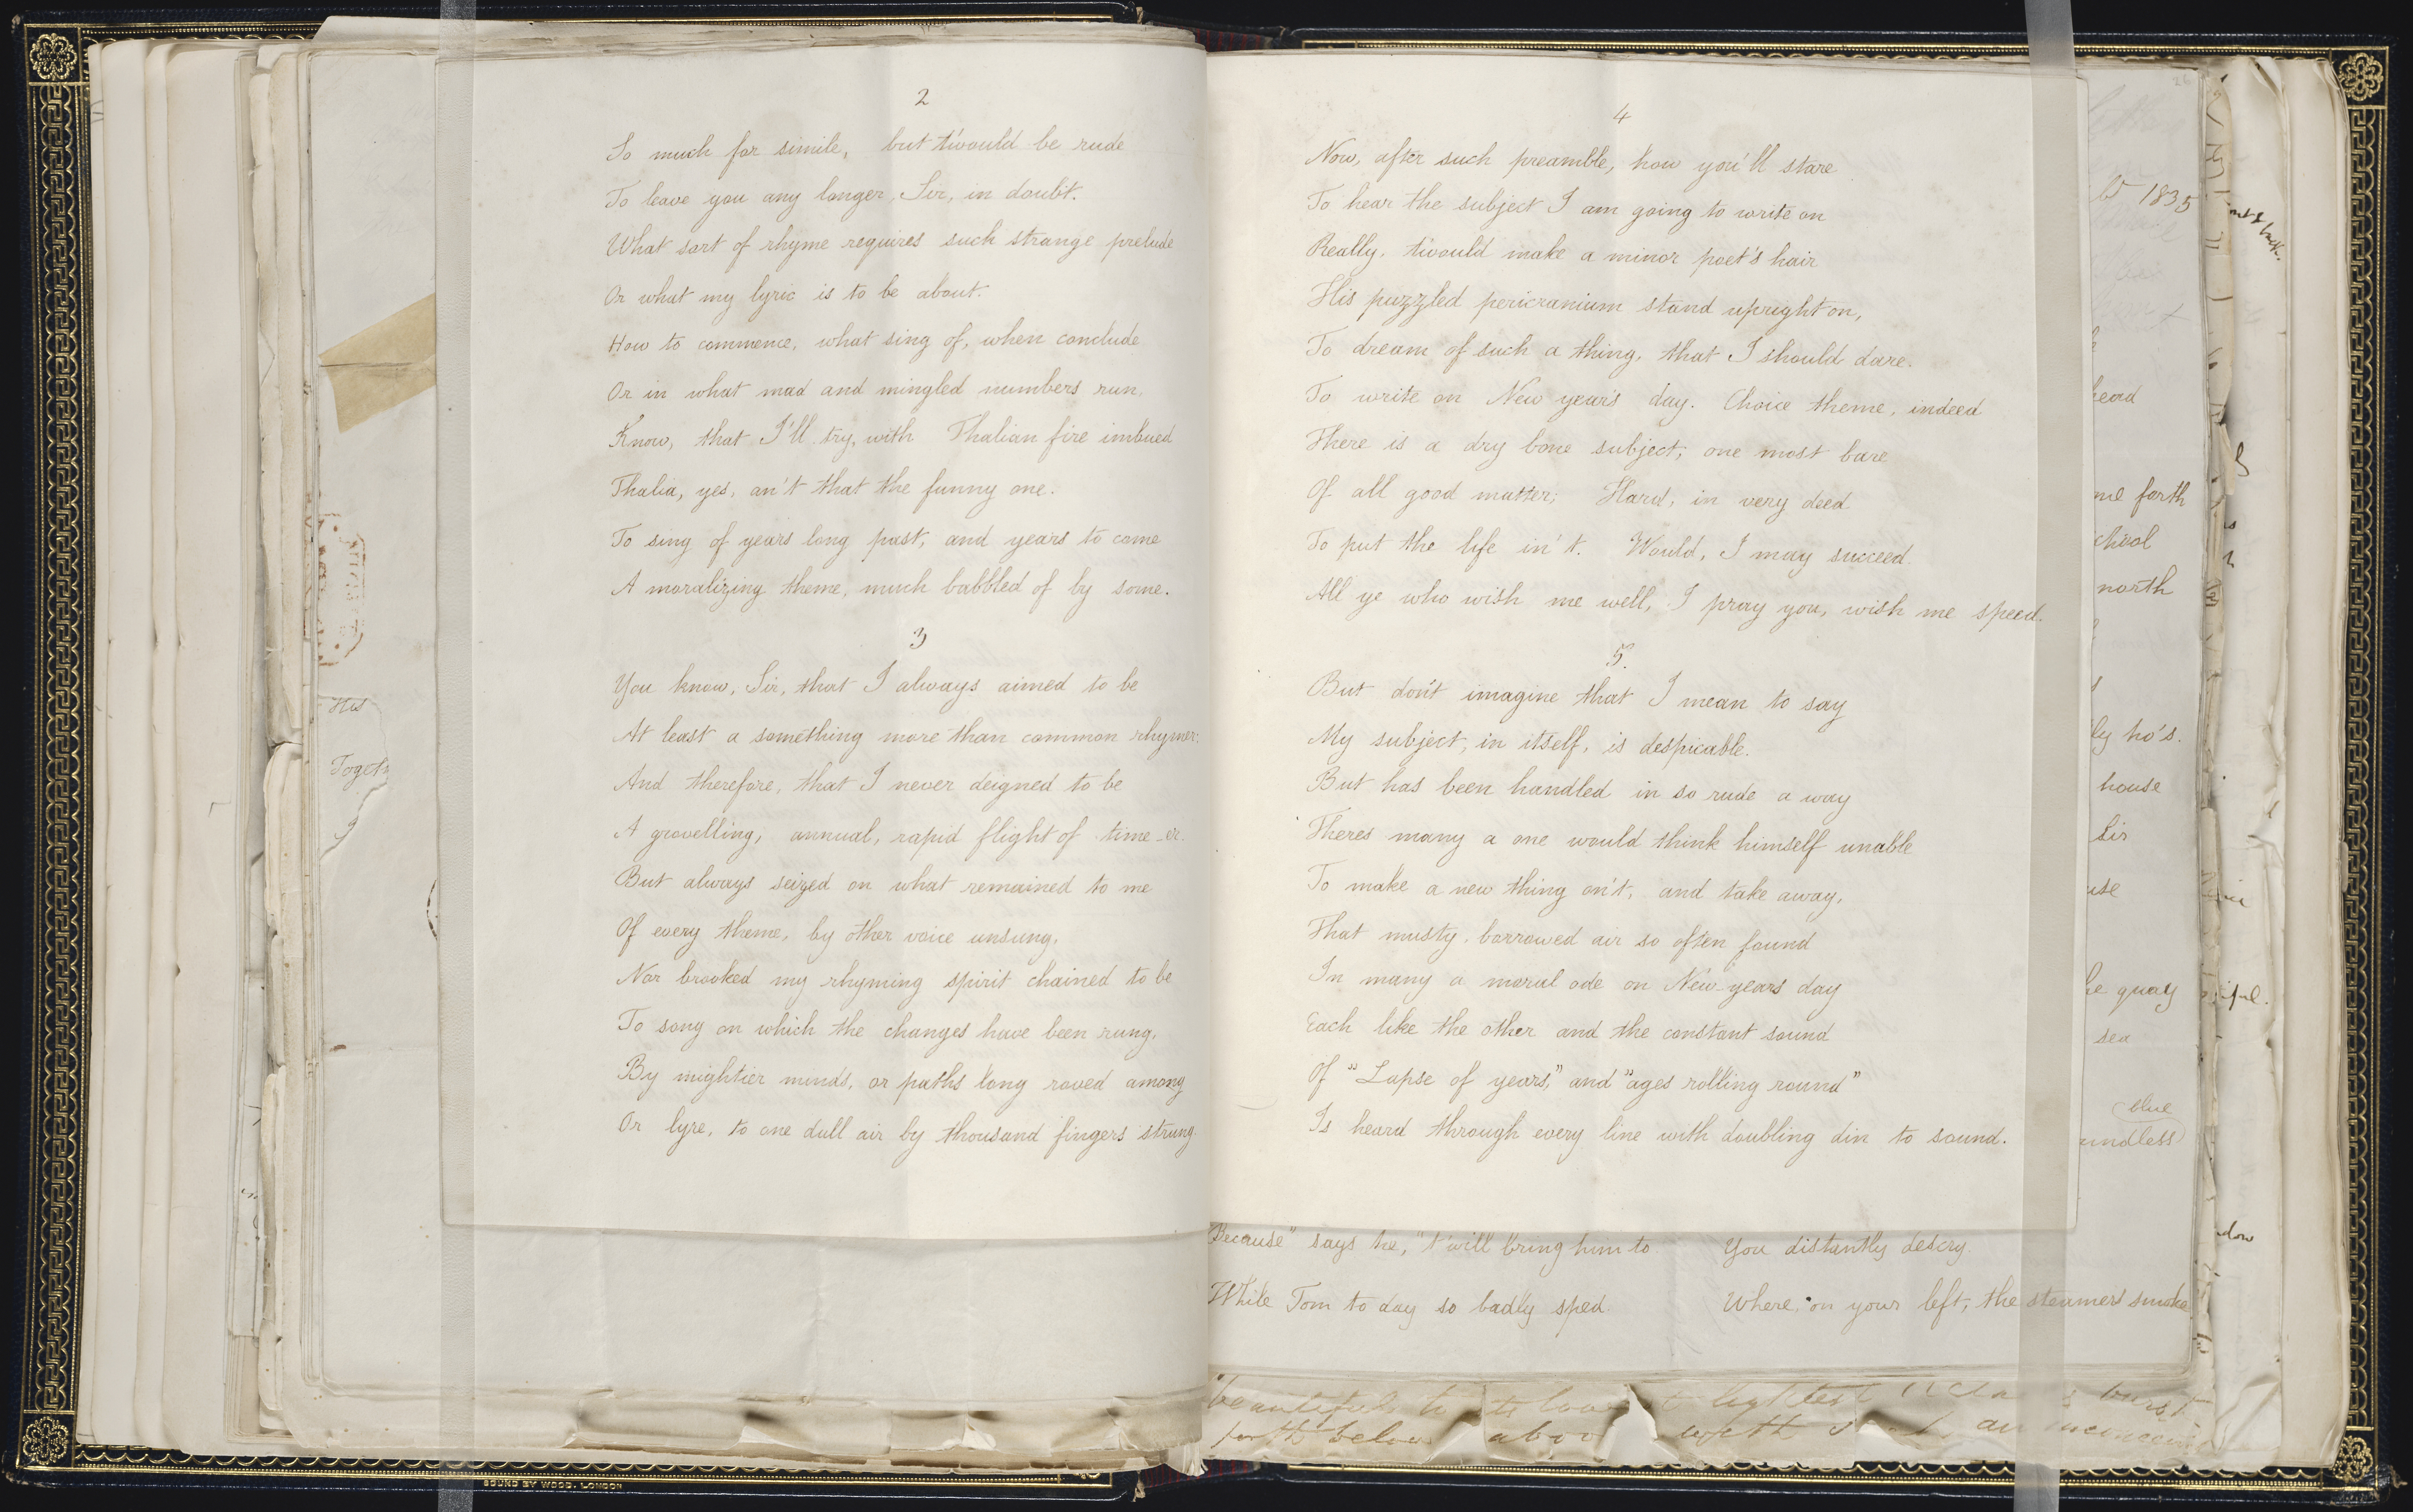 2
So much for simile, but t'would be rude
To leave you any longer, Sir, in doubt.
What sort of rhyme requires such strange prelude
Or what my lyric is to be about.
How to commence, what sing of, when conclude
Or in what mad and mingled numbers run,
Know, that I'll try, with Thalian fire imbued
Thalia, yes, an't that the funny one.
To sing of years long past, and years to come
A moralizing theme, much babbled of by some.
3
You know, Sir, that I always aimed to be
At least a something more than common rhymer;
And therefore, that I never deigned to be
A grovelling, annual, rapid flight of time-er.
But always seized on what remained to me
Of every theme, by other voice unsung,
Nor brooked my rhyming spirit chained to be
To song on which the changes have been rung,
By mightier minds, or paths long roved among
Or lyre, to one dull air by thousand fingers strung.
His
Togeth
I
4
Now, after such preamble, how you'll stare
To hear the subject I am going to write on
Really, t'would make a minor poet's hair
His puzzled pericranium stand upright on,
To dream of such a thing, that I should dare.
To write on New year's day. Choice theme, indeed
There is a dry bone subject; one most bare
Of all good matter; Hard, in very deed
To put the life in't. Would, I may succeed.
All ye who wish me well, I pray you, wish me speed.
5.
But don't imagine that I mean to say
My subject, in itself, is despicable.
But has been handled in so rude a way
Theres many a one would think himself unable
To make a new thing on't, and take away,
That musty, borrowed air so often found
In many a moral ode on New years day
Each like the other and the constant sound
Of "Lapse of years," and "ages rolling round"
Is heard through every line with doubling din to sound.
Because" says he, "t'will bring him to
While Tom to day so badly sped.
You distantly descry.
Where, on your left, the steamers smoke
26
1835
head
me forth
chool
north
ly ho's.
house
Sir
use
he quay
sea
blue
undless
beautiful
forth below above with
BOUND BY WOOD, LONDON